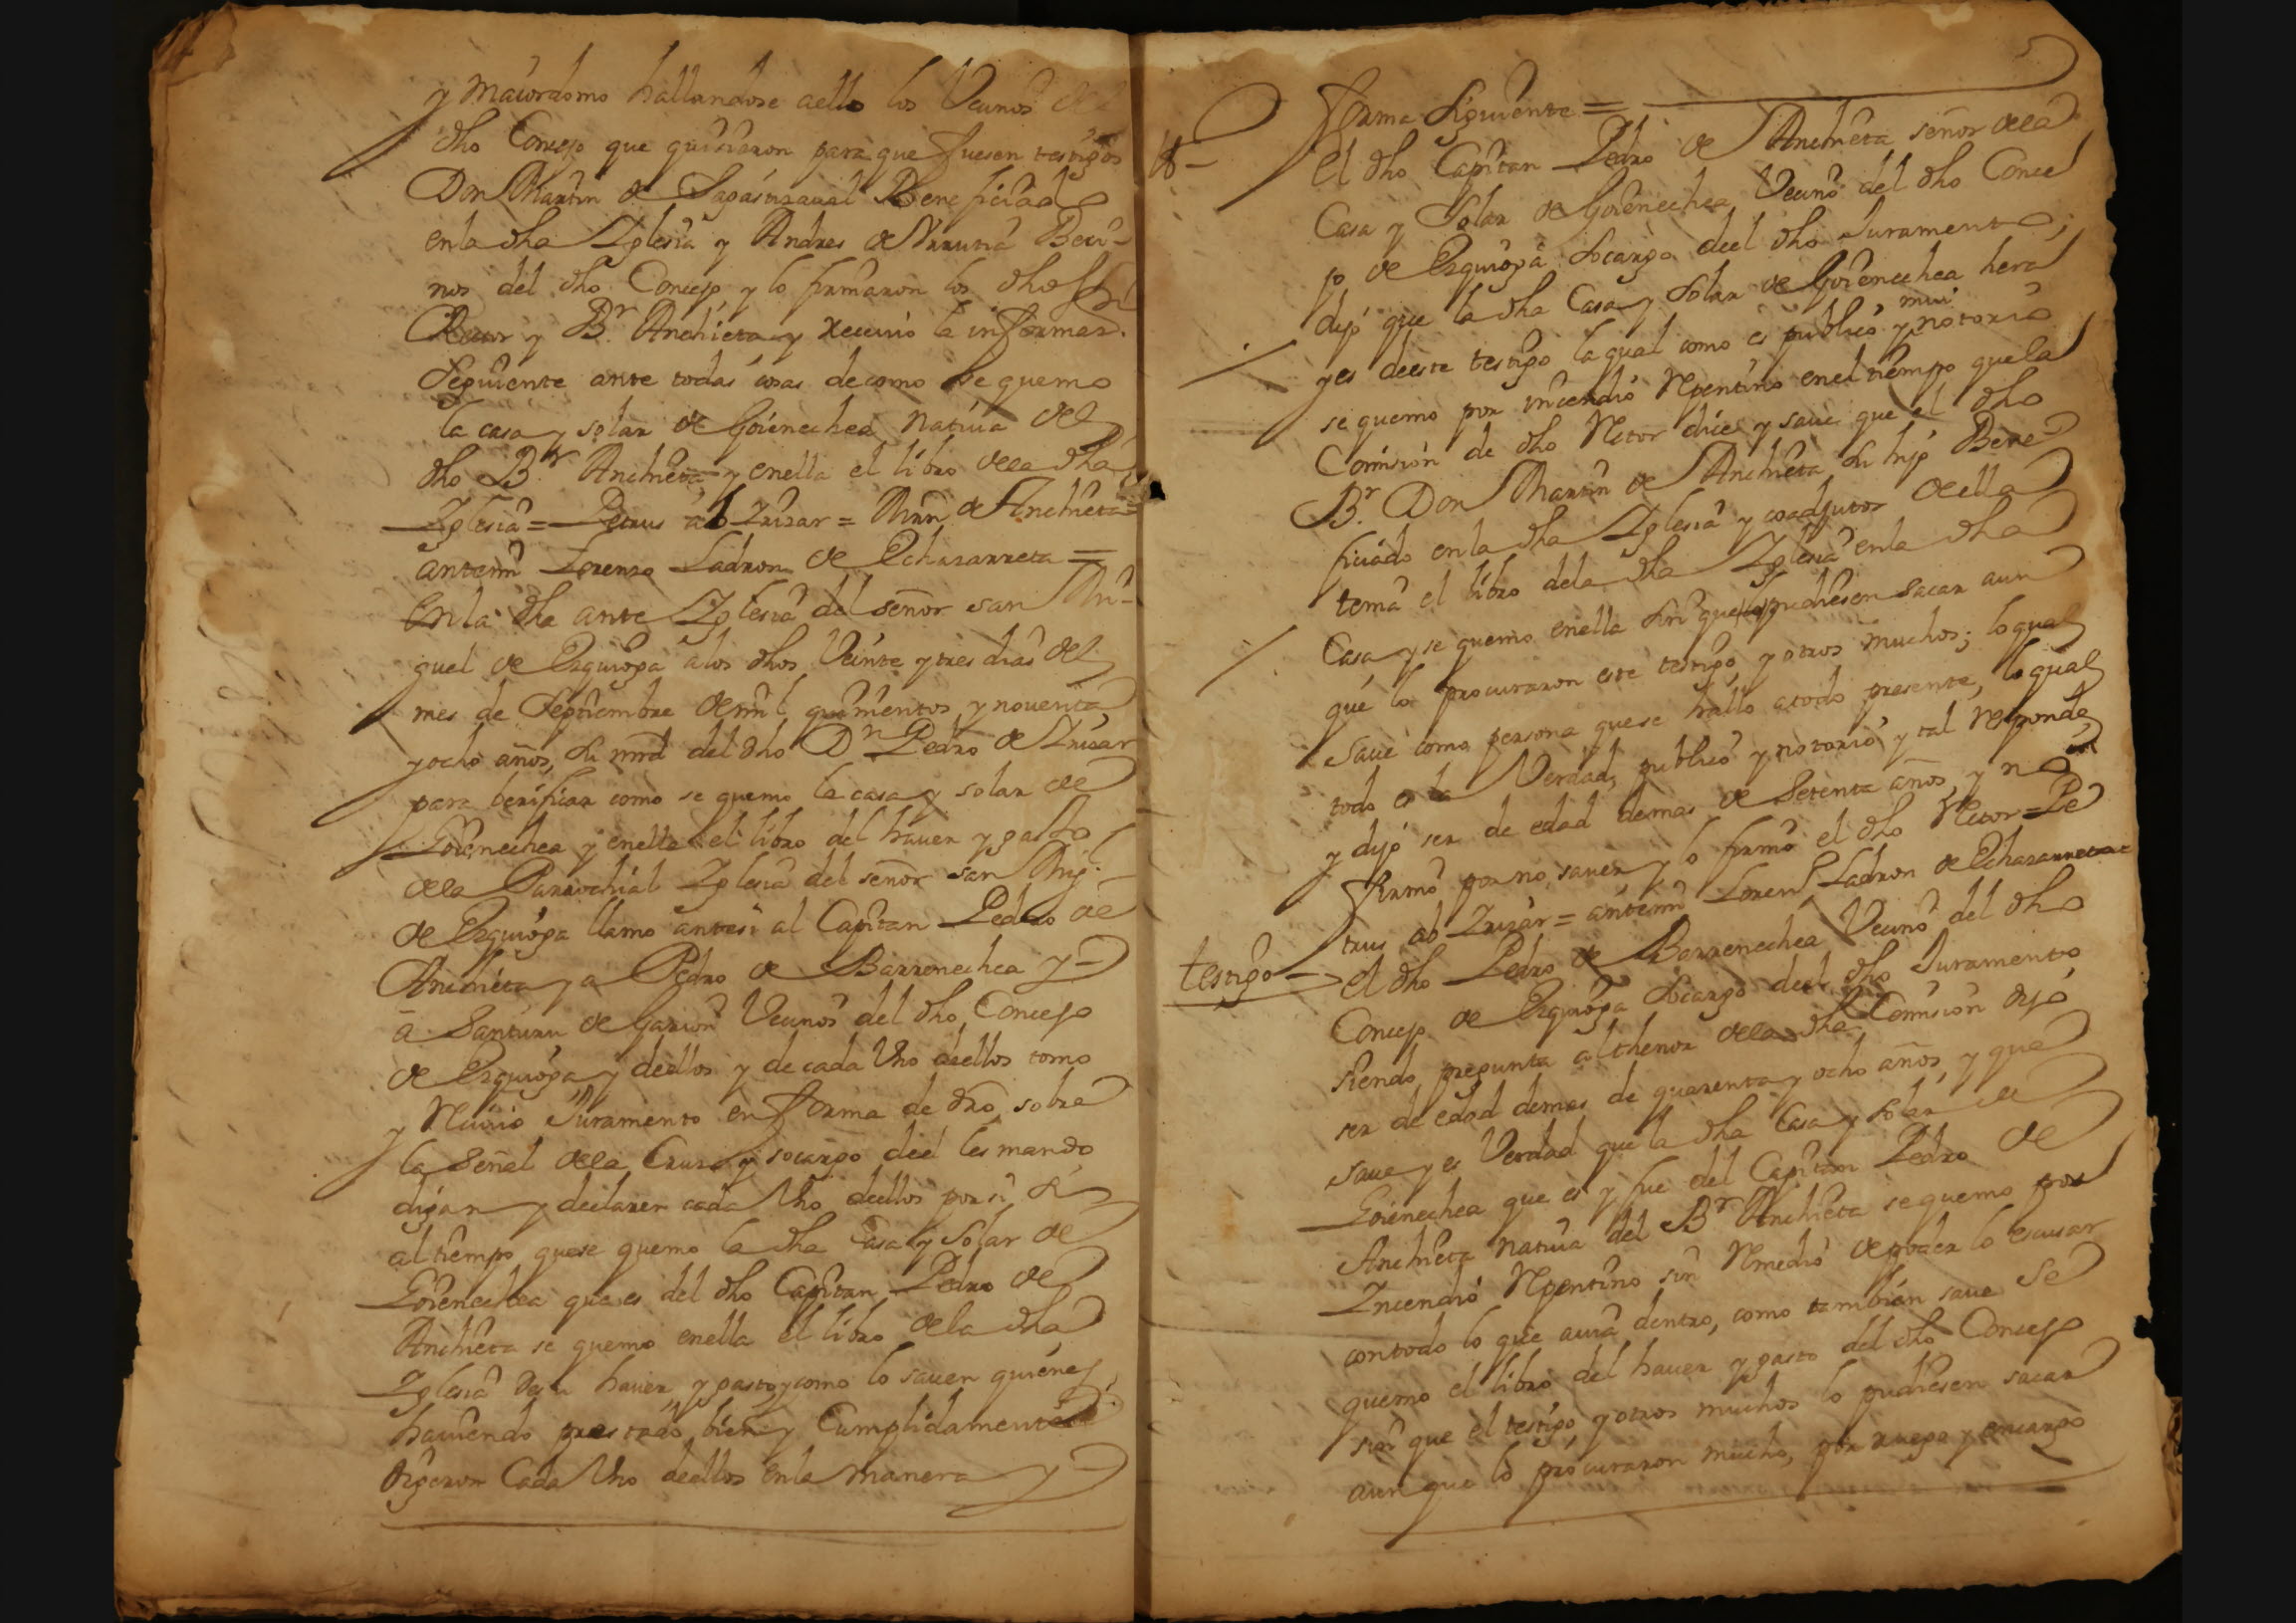 y maiordomo hallandose aello los Vecinos del
dho Concejo que quisieron para que fuesen testigos
Don Martin de Sagastizaual Beneficiado
enla dha Iglesia y Andres de Vrrutia Beci-
nos del dho Concejo y lo firmaron los dhos
Rector y Br. Anchieta y receuio la informaz.
siguiente ante todas cosas decomo se quemo
la casa y solar de Goienechea natiua del
dho Br. Anchieta y enella el libro dela dha
Iglesia = Petrus ab Irizar = Mrn de Anchieta =
antemi Lorenzo Ladron de Echazarreta =
Enla dha ante Iglesia del señor san Mi-
guel de Ezquioga alos dhos Veinte y tres dias del
mes de Septiembre de mil quinientos y noventa
y ocho años, su mrd del dho Dn Pedro de Irizar
para berificar como se quemo la casa y solar de
Goienechea y enella el libro del hauer y gasto
dela Parrochial Iglesia del señor san Migl.
de Ezquioga llamo antesi al Capitan Pedro de
Anchieta y a Pedro de Barrenechea y
a Santuru de Garin Vecinos del dho Concejo
de Ezquioga y dellos y de cada Vno dellos tomo
y Reciuio Juramento en forma de dro sobre
la señal dela Cruz y socargo deel les mando
digan y declaren cada Vno dellos por si, si
al tiempo quese quemo la dha Casa y Solar de
Goienechea que es del dho Capitan Pedro de
Anchieta se quemo enella el libro dela dha
Iglesia de su hauer y gasto y como lo sauen quienes
hauiendo prestado bien y Cumplidamente
digeron Cada Vno dellos enla manera y
forma siguiente =
to =
El dho Capitan Pedro de Anchieta señor dela
Casa y Solar de Goienechea Vecino del dho Conce
jo de Ezquioga socargo deel dho Juramento;
dijo que la dha Casa y Solar de Goienechea hera
mui
y es deeste testigo la qual como es publico y notorio
se quemo por incendio Repentino enel tiempo quela
Comision de dho Retor dice y saue que el dho
Br. Don Martin de Anchieta su hijo Bene
ficiado enla dha Iglesia y coadjutor della
tenia el libro dela dha Iglesia enla dha
Casa y se quemo enella sin que lo pudiesen sacar aun
que lo procuraron este testigo, y otros muchos; lo qual
saue como persona quese hallo atodo presente, lo qual
todo es la Verdad, publico y notorio y tal Responde
y dijo ser de edad demas de Setenta años, y no
firmo por no sauer y lo firmo el dho Retor = Pe
trus ab Irizar = antemi Lorenzo Ladron de Echazarreta =
testigo =
El dho Pedro de Barrenechea Vecino del dho
Concejo de Ezquioga socargo deel dho Juramento
siendo pregunta al thenor dela dha Comision dijo
ser de edad demas de quarenta y ocho años, y que
saue y es Verdad que la dha Casa y solar de
Goienechea que es y fue del Capitan Pedro de
Anchieta natiua del Br Anchieta se quemo por
Incendio Repentino sin Remedio depoder lo escusar
contodo lo que auia dentro, como tambien saue Se
quemo el libro del hauer y gasto del dho Concejo
sin que el testigo, y otros muchos lo pudiesen sacar
aun que lo procuraron mucho, por ruego y encargo